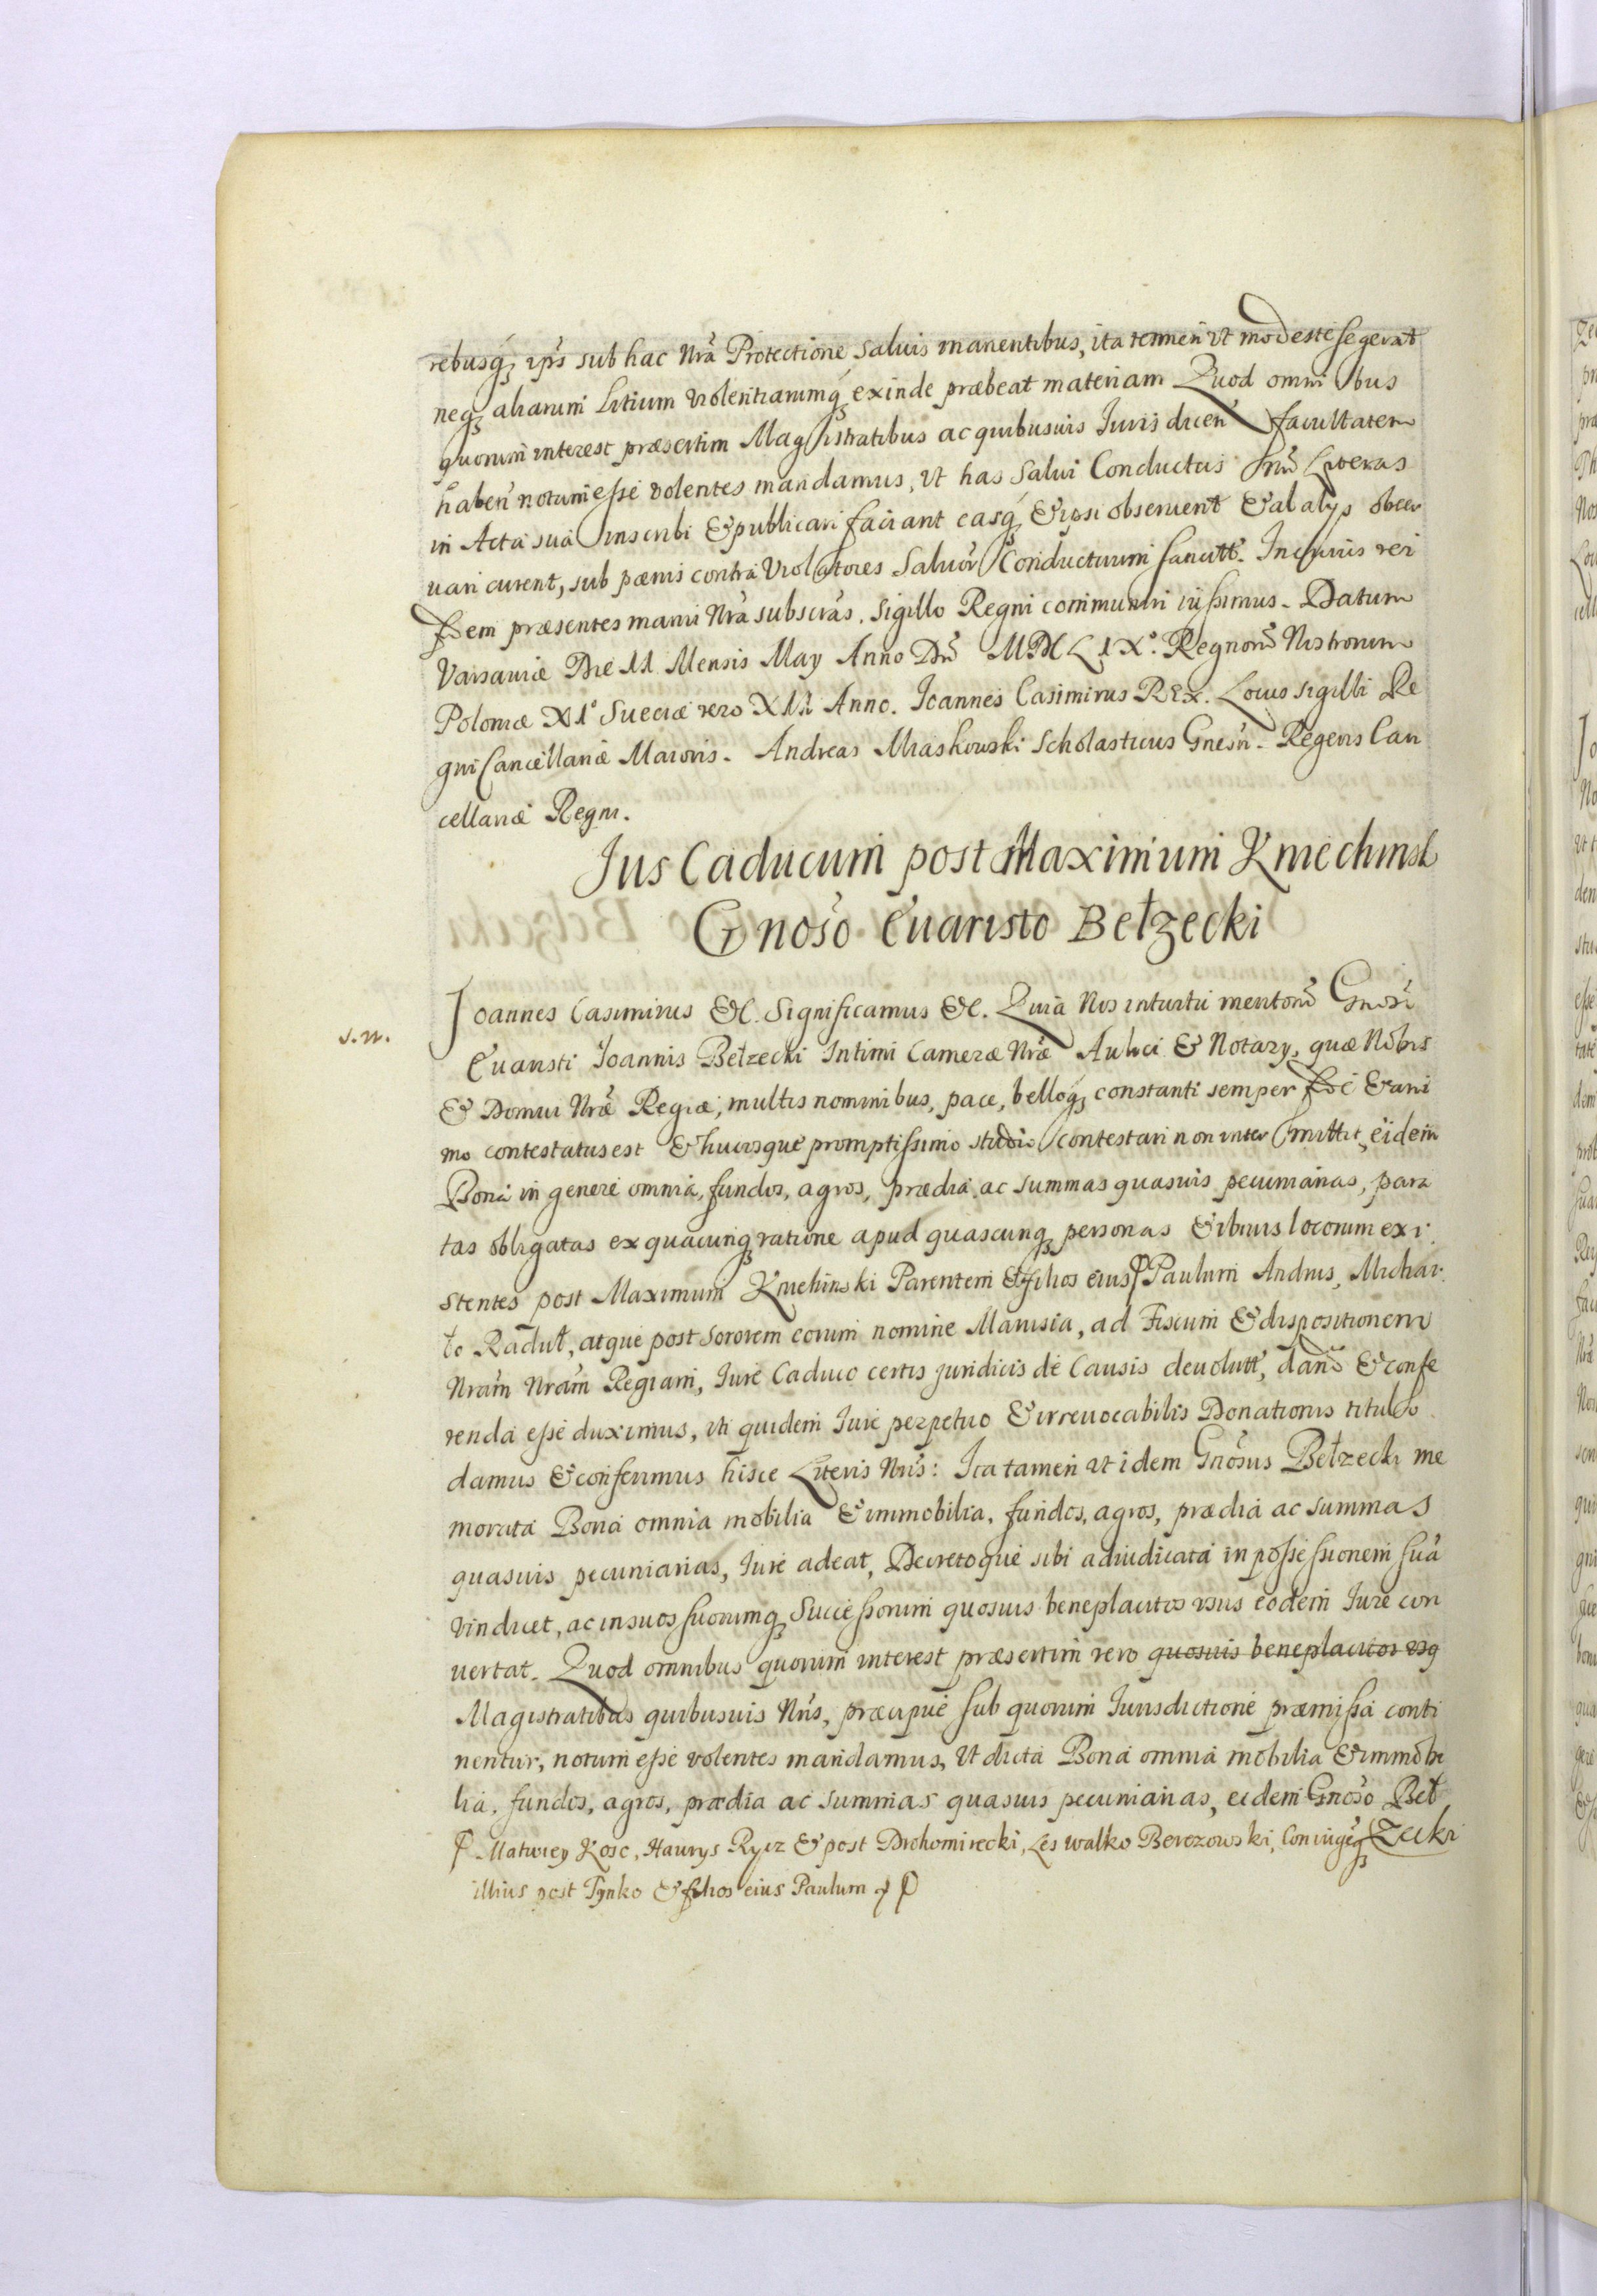 rebusq, ipīs sub hac Nrā Protectione saluis manentibus, ita tamen vt modeste se gerat
neq, aliarum Litium violentiarumq, exinde præbeat materiam Quod omnibus
quorum interest præsertim Magistratibus ac quibusuis Iuris dicen facultatem
haben notum esse volentes mandamus, vt has salui Conductus Literas
in Acta sua inscribi & publicari faciant easq, & ipsi obseruent & ab alijs obser
uari curent, sub pænis contra Violatores Saluor Conductuum sancitt. In cuius rei
fidem præsentes manu Nrā subscrās, sigillo Regni communiri iussimus. Datum
Varsauiæ Die 11 Mensis May Anno Dnī MDCLIXo. Regnorū Nostrorum
Poloniæ XIo Sueciæ vero XII Anno. Joannes Casimirus Rex. Locus sigilli Re
gni Cancellariæ Maioris. Andreas Miaskowski Scholasticus Gnesn. Regens Can
cellariæ Regni.
Jus Caducum post Maximum Kniechinsk
Gnoso Euaristo Bełzecki
s.n.
Joannes Casimirus &c. Significamus &c. Quia Nos intuitu meritorū Gnosi
Euaristi Joannis Bełzecki Intimi Cameræ Nræ Aulici & Notarij, quæ Nobis
& Domui Nræ Regiæ, multis nominibus, pace, belloq, constanti semper & ani
mo contestatus est & hucusque promptissimo studio contestari non inter mittit, eidem
Bona in genere omnia, fundos, agros, prædia, ac summas quasuis pecuniarias, para
tas obligatas ex quacunq, ratione apud quascunq, personas & ibiuis locorum exi
stentes post Maximum Kniehinski Parentem & filios eius Paulum Andruś, Michai
ło Raduł, atque post sororem eorum nomine Marusia, ad Fiscum & dispositionem
Nram Nram Regiam, Iure Caduco certis juridicis de Causis deuolutt, danda & confe
renda esse duximus, vti quidem Iure perpetuo & irreuocabilis Donationis titulo
damus & conferimus hisce Literis Nris: Ita tamen vt idem Gnosus Bełzecki me
morata Bona omnia mobilia & immobilia, fundos, agros, prædia ac summas
quasuis pecuniarias, Iure adeat, Decretoque sibi adiudicata in possessionem suā
vindicet, ac in suos suorumq, Successorum quosuis beneplacitos vsus eodem Iure con
uertat. Quod omnibus quorum interest præsertim vero quosuis beneplacitos vsq
Magistratibus quibusuis Nris, præcipue sub quorum Iurisdictione præmissa conti
nentur, notum esse volentes mandamus, Vt dicta Bona omnia mobilia & immobi
lia, fundos, agros, prædia ac summas quasuis pecuniarias, eidem Gnoso Beł
zecki
Matwiey Kosc, Hawrys Rycz & post Drohomirecki, Les walko Berezowski, Coniugēq,
illius post Tynko & filios eius Paulum